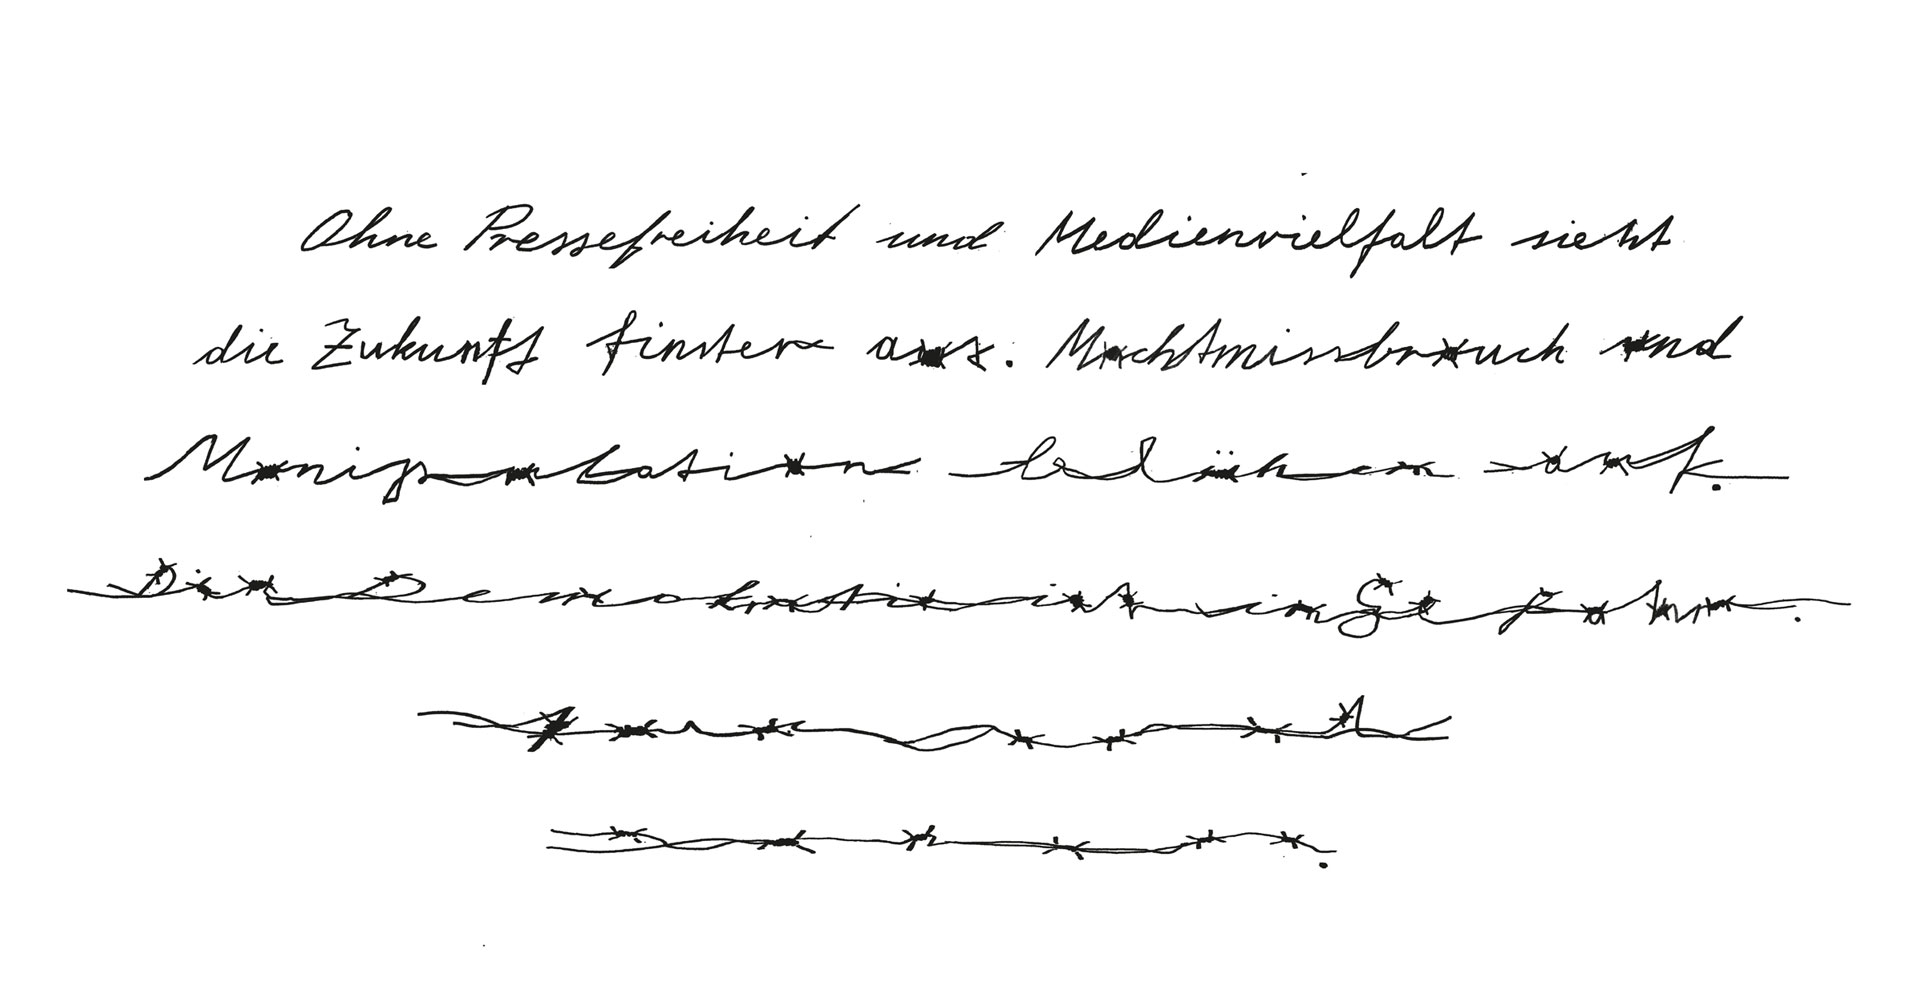 Ohne Pressefreiheit und Medienvielfalt sieht
die Zukunft finster aus. Machtmissbrauch und
Manipulation blühen auf.
Die Demokratie ist in Gefahr.